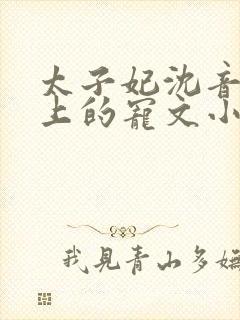 太子妃沈音
上的寵文小
我見青山多嫵